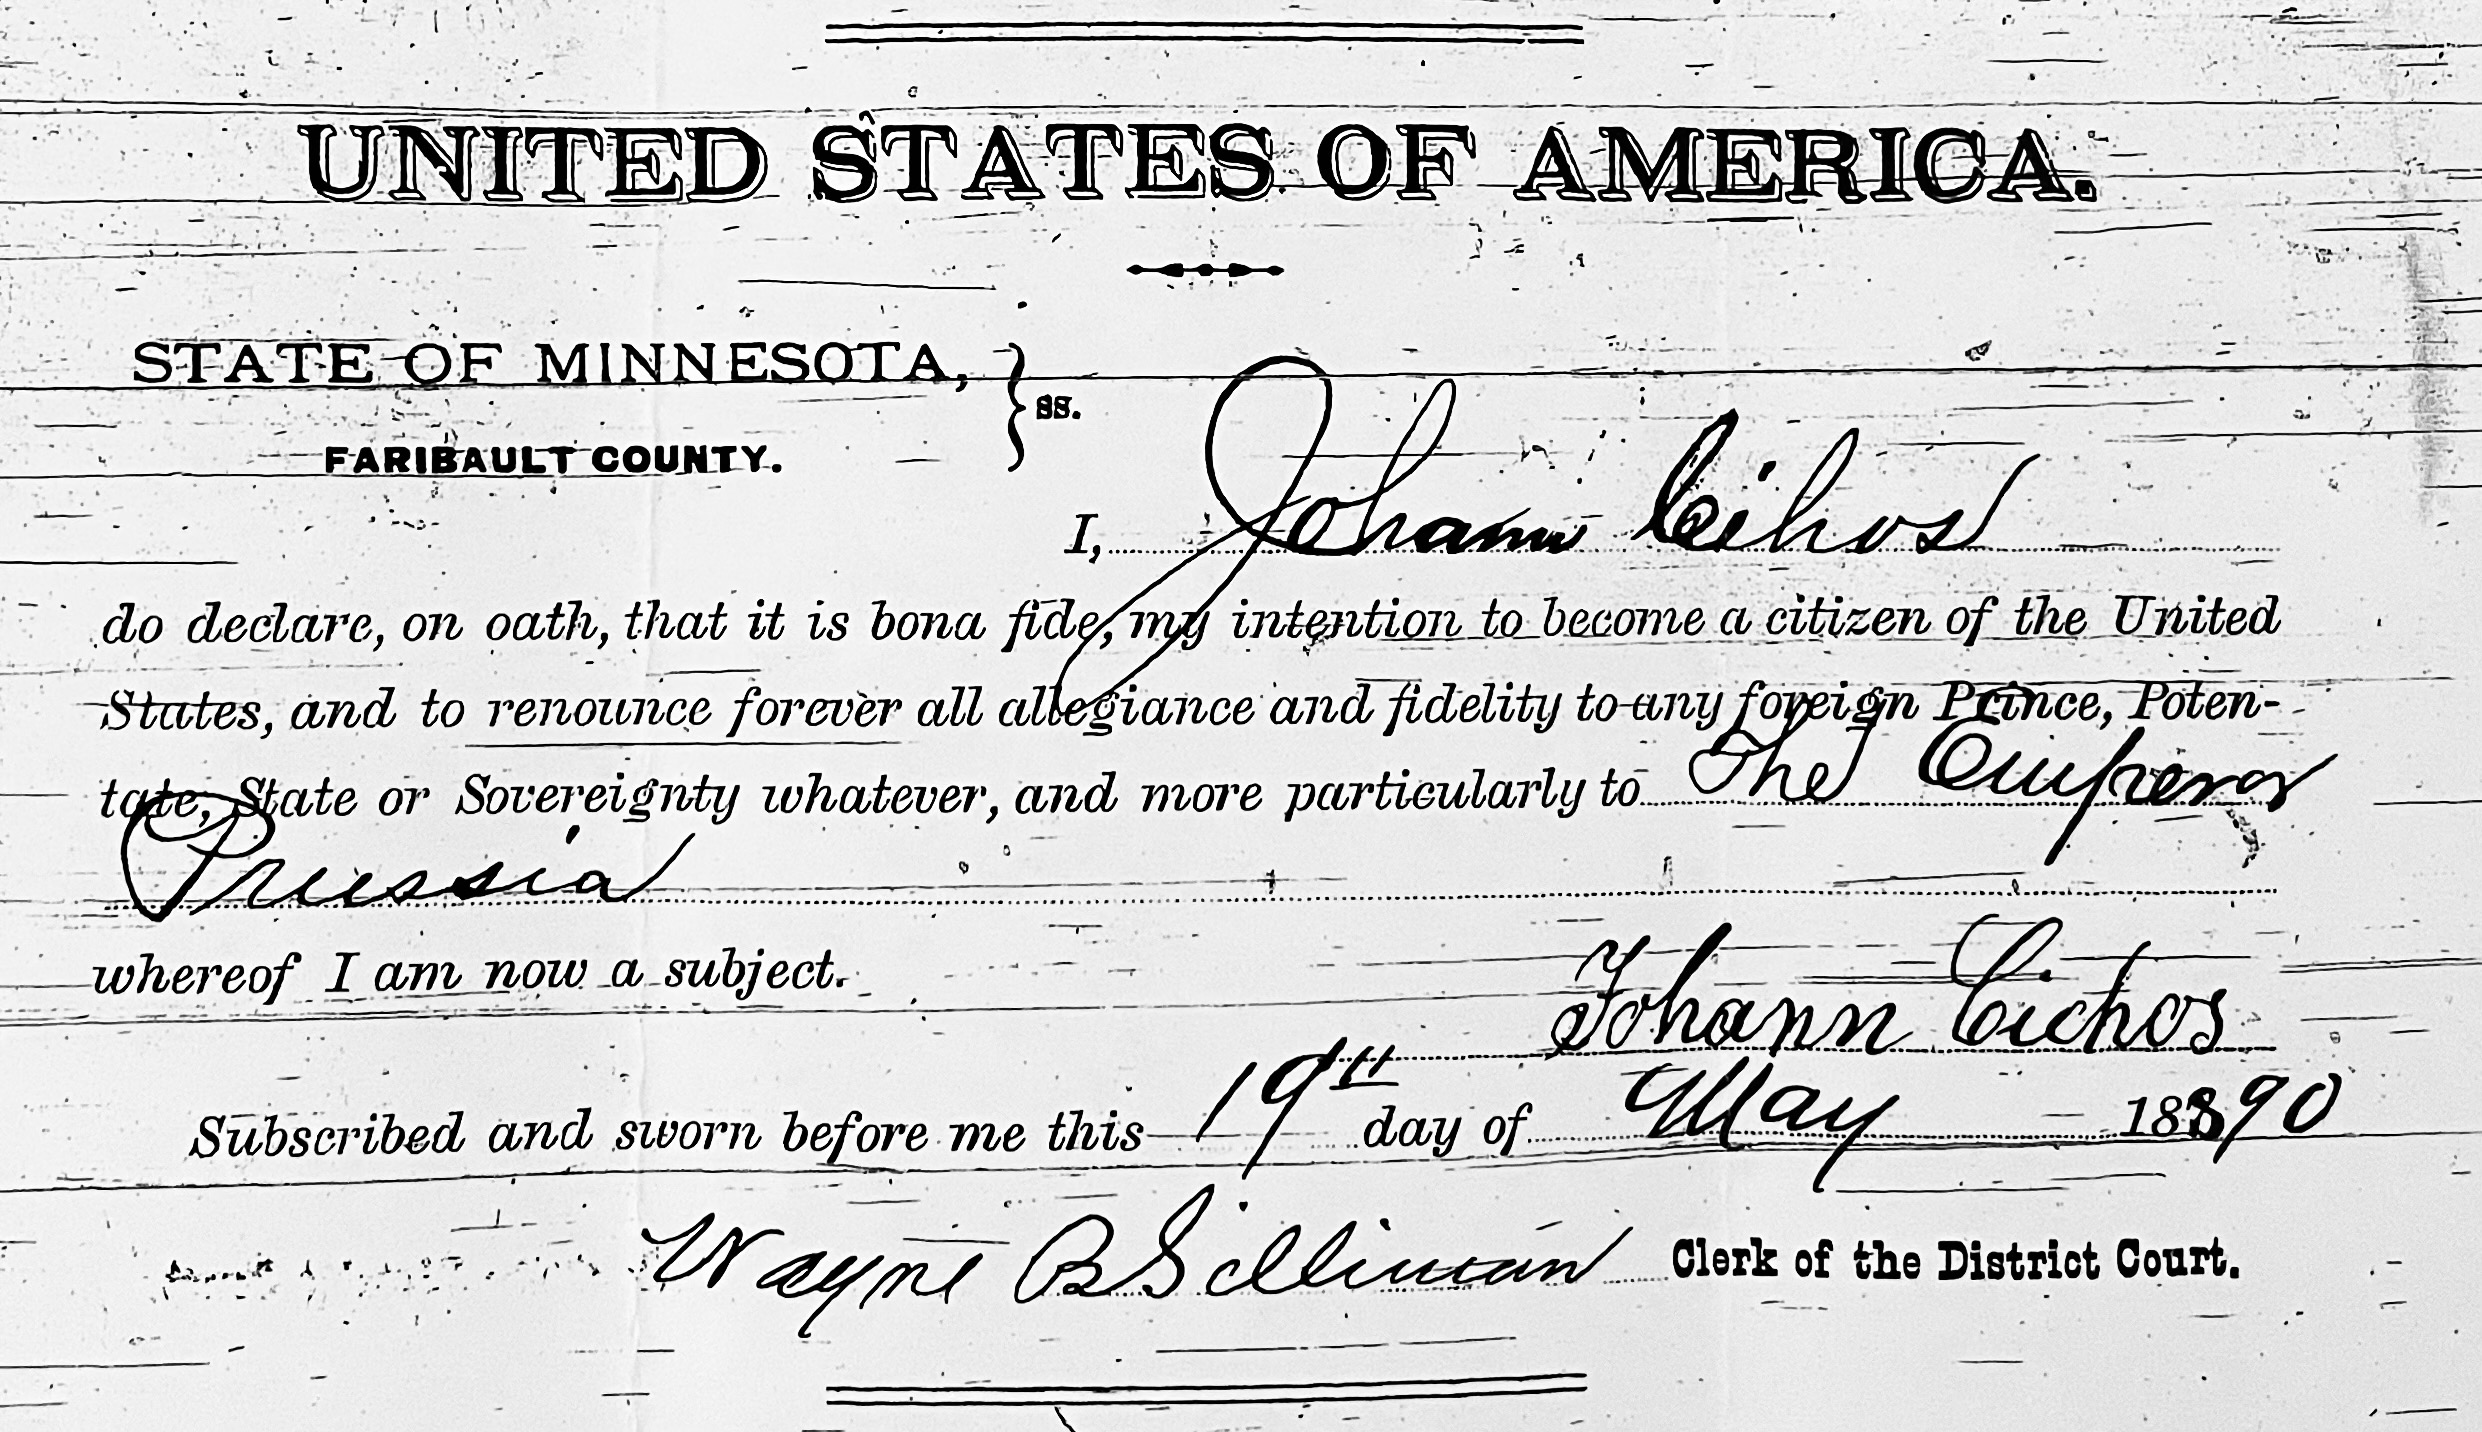 UNITED STATES OF AMERICA.
STATE OF MINNESOTA,
ss.
FARIBAULT COUNTY.
I, Johann Cihos
do declare, on oath, that it is bona fide, my intention to become a citizen of the United
States, and to renounce forever all allegiance and fidelity to any foreign Prince, Poten-
tate, State or Sovereignty whatever, and more particularly to The Emperor
Prussia
whereof I am now a subject.
Johann Cichos
Subscribed and sworn before me this 19th day of May 18890
Wayne B Silliman Clerk of the District Court.